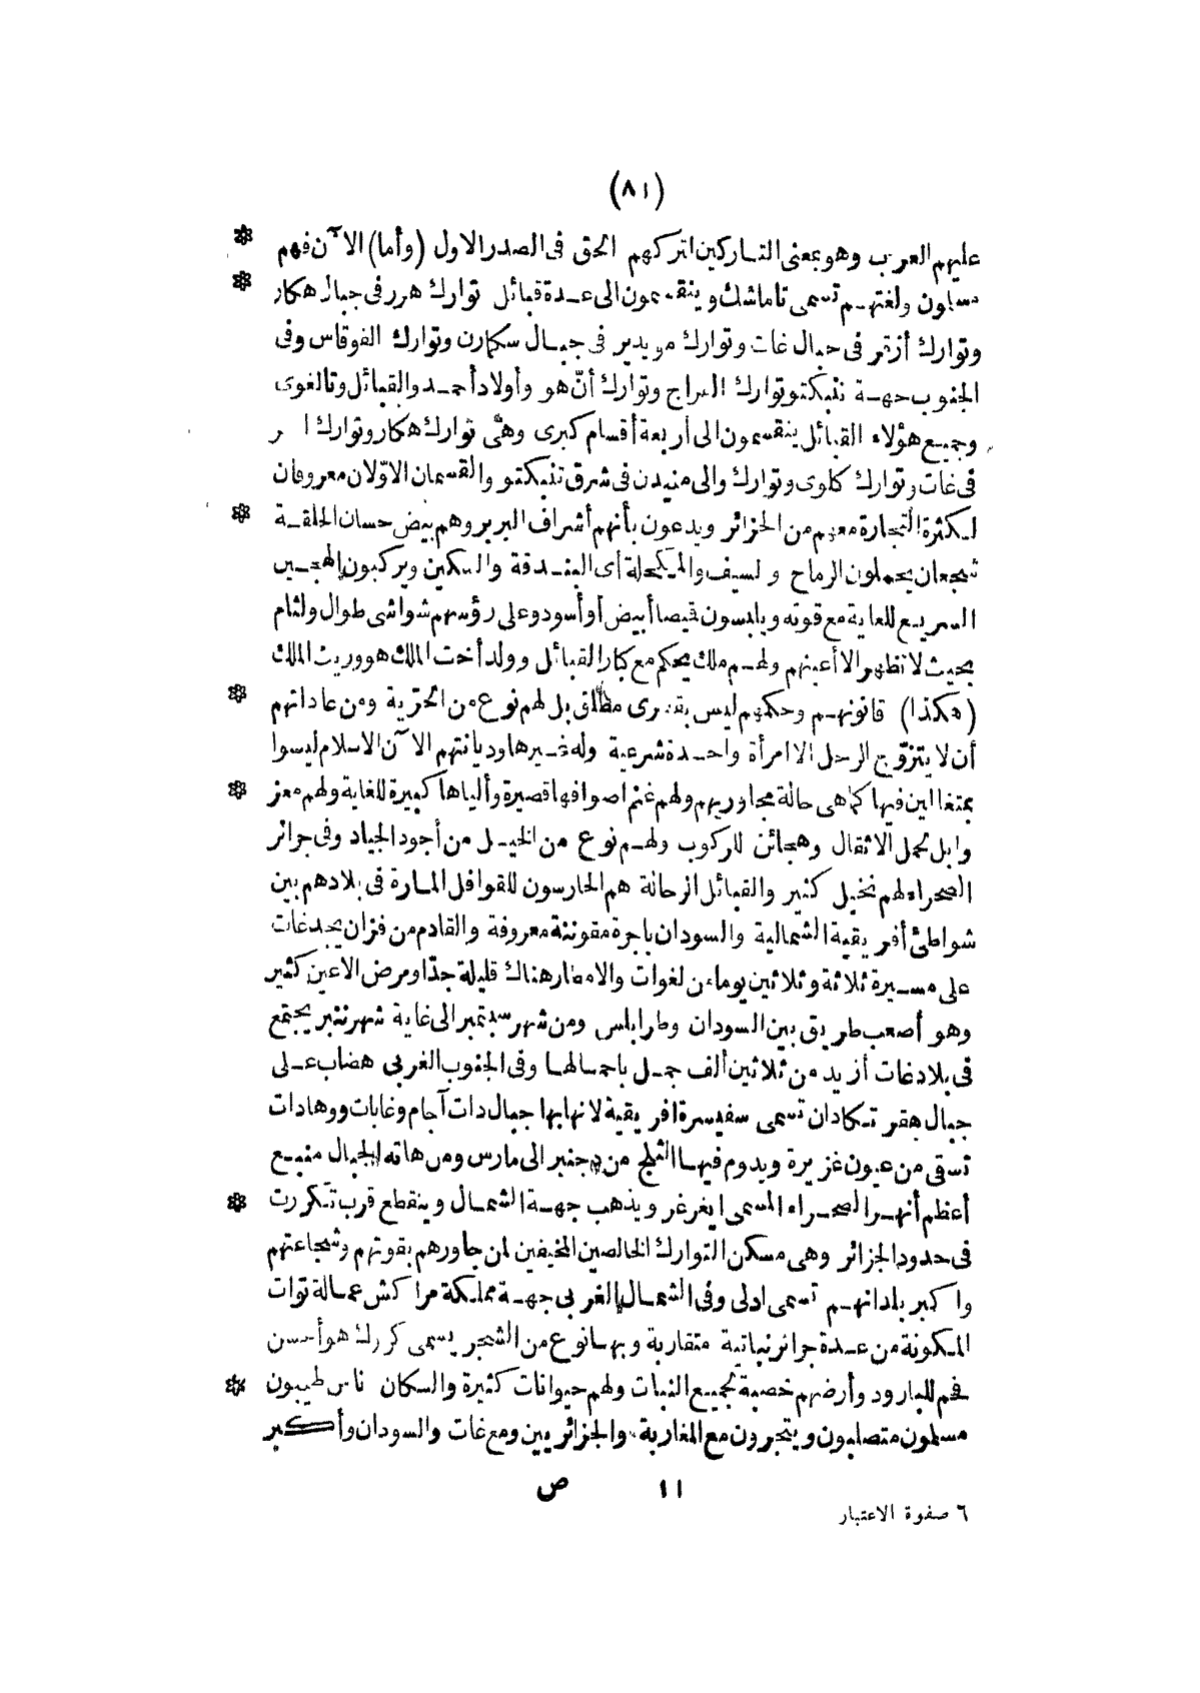 (٨١)
عليهم العرب وهو بمعنى التاركين لتركهم الحق فى الصدر الاول (وأما) الآن فهم *
مسلمون ولغتهم تسمى تاماشك وينقسمون الى عدة قبائل توارك هرر فى جبال هكار *
وتوارك أزقر فى جبال غات وتوارك مويدير فى جبال سكمارن وتوارك الفوقاس وفى
الجنوب جهة تنبكتو توارك البراج وتوارك أنّ هو وأولاد أحمد والقبائل وتالغوى
وجميع هؤلاء القبائل ينقسمون الى أربعة أقسام كبرى وهى توارك هكار وتوارك
فى غات وتوارك كلوى وتوارك والى منيدن فى شرق تنبكتو والقسمان الاوّلان معروفان
لكثرة التجارة معهم من الجزائر ويدعون بأنهم أشراف البربر وهم بيض حسان الخلقة *
شجعان يحملون الرماح والسيف والمكحلة أى البندقة والسكين ويركبون الهجين
السريع للغاية مع قوته ويلبسون قميصا أبيض أو أسود وعلى رؤسهم شواشى طوال ولثام
بحيث لا تظهر الا أعينهم ولهم ملك يحكم مع كبار القبائل وولد أخت الملك هو وريث الملك
(هكذا) قانونهم وحكمهم ليس بقهرى مطلق بل لهم نوع من الحرّية ومن عاداتهم *
أن لا يتزوّج الرجل الا امرأة واحدة شرعية وله غيرها وديانتهم الآن الاسلام ليسوا
بمتغالين فيها كما هى حالة مجاوريهم ولهم غنم اصوافها قصيرة وألياها كبيرة للغاية ولهم معز *
وابل لحمل الاثقال وهجائن للركوب ولهم نوع من الخيل من أجود الجياد وفى جزائر
الصحراء لهم نخيل كثير والقبائل الرحالة هم الحارسون للقوافل المارة فى بلادهم بين
شواطئ أفريقية الشمالية والسودان باجرة مقوننة معروفة والقادم من فزان يجد غات
على مسيرة ثلاثة وثلاثين يوما من لغوات والامطار هناك قليلة جدّا ومرض الاعين كثير
وهو أصعب طريق بين السودان وطرابلس ومن شهر سبتمبر الى غاية شهر ننبر يجتمع
فى بلاد غات أزيد من ثلاثين ألف جمل باحمالها وفى الجنوب الغربى هضاب على
جبال هقر تكادان تسمى سفيسرة افريقية لانها بها جبال ذات آجام وغابات ووهادات
تسقى من عيون غزيرة ويدوم فيها الثلج من دجنبر الى مارس ومن هاته الجبال منبع
أعظم أنهر الصحراء المسمى ايغرغر ويذهب جهة الشمال وينقطع قرب تكررت *
فى حدود الجزائر وهى مسكن التوارك الخالصين المخيفين لمن جاورهم بقوتهم وشجاعتهم
واكبر بلدانهم تسمى ادلى وفى الشمال الغربى جهة مملكة مراكش عمالة توات
المكونة من عدة جزائر نباتية متقاربة وبها نوع من الشجر يسمى كررك هو أحسن
فحم للبارود وأرضهم خصبة لجميع النبات ولهم حيوانات كثيرة والسكان ناس طيبون *
مسلمون متصلبون ويتجرون مع المغاربة والجزائريين ومع غات والسودان وأكبر
١١ ص
٦ صفوة الاعتبار